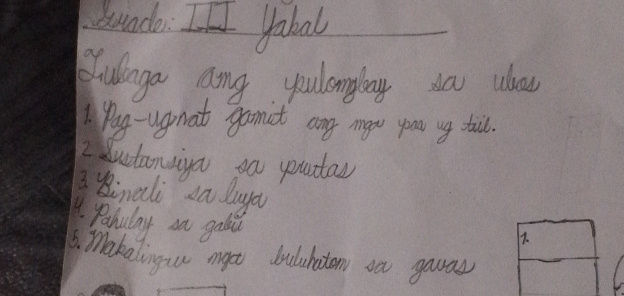 Grade: III Yakal
Tubaga ang pulongbay sa ubos
1. Pag-ugnat gamit ang mga paa ug tiil.
2. Sustansiya sa prutas
3. Binali sa luya
4. Pahulay sa gabii
5. Makalingaw nga buluhaton sa gawas
1.